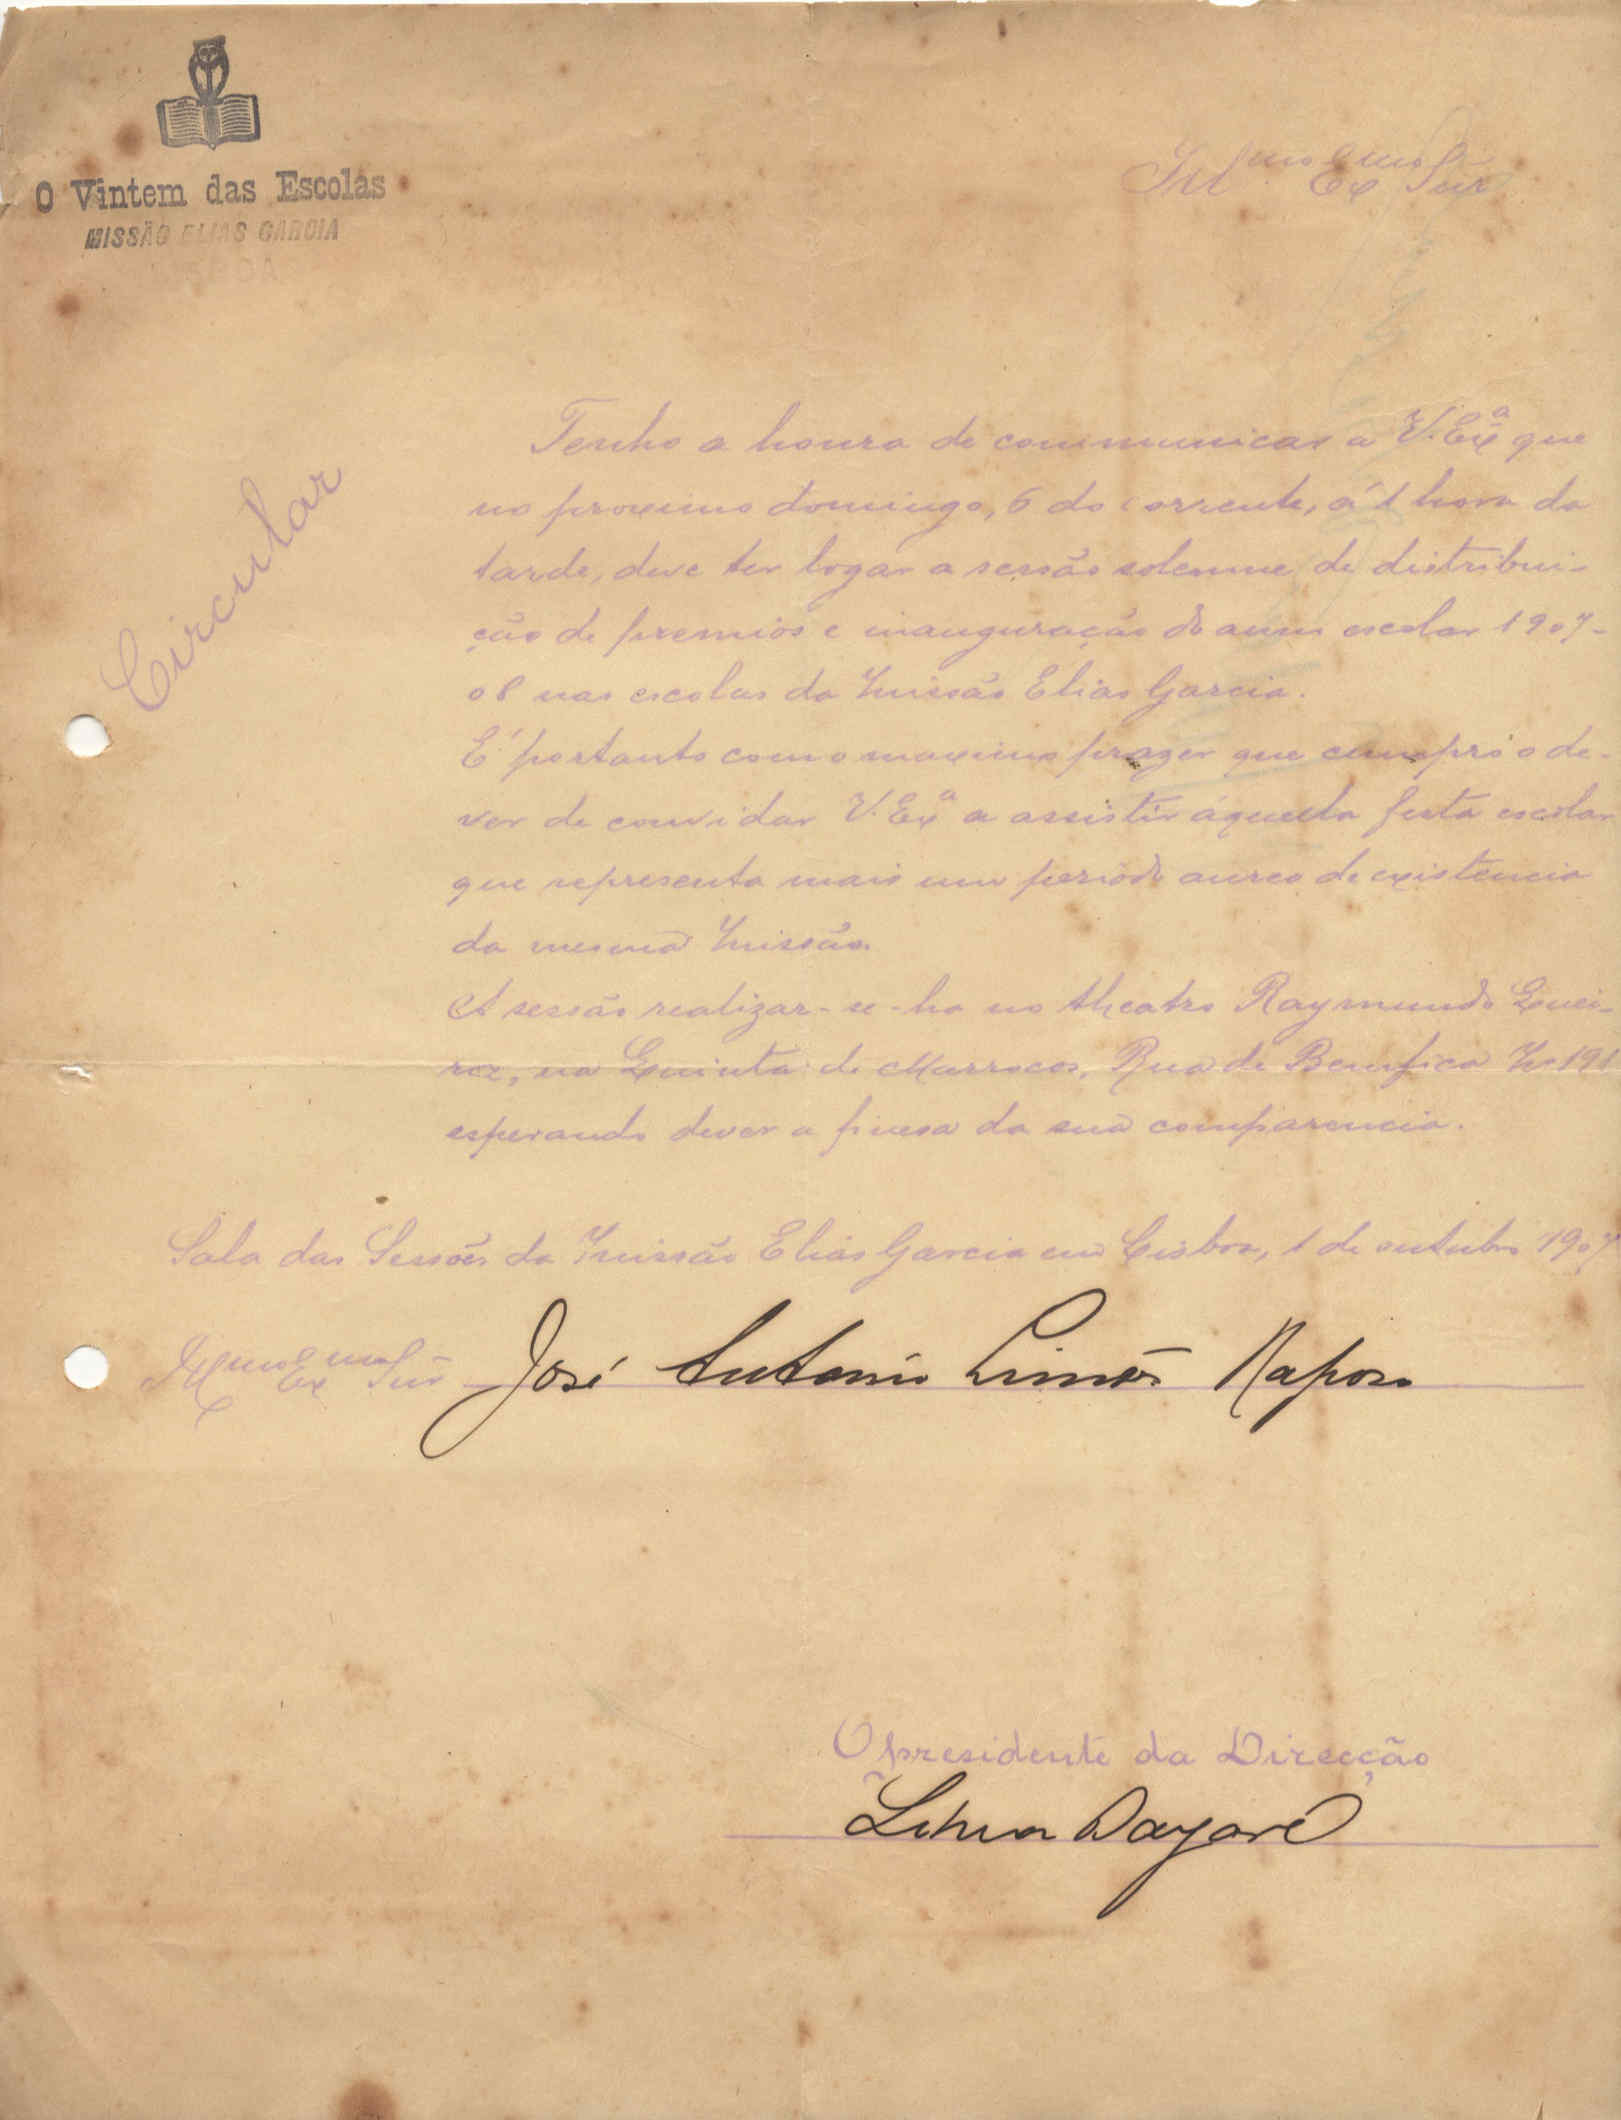 O Vintem das Escolas
MISSÃO ELIAS GARCIA
LISBOA
Ill.mo Ex.mo Snr
Circular
Tenho a honra de communicar a V. Exª que
no proximo domingo, 6 do corrente, á 1 hora da
tarde, deve ter logar a sessão solemne de distribui-
ção de premios e inauguração do anno escolar 1907-
08 nas escolas da Missão Elias Garcia.
E' portanto com o maximo prazer que cumpro o de-
ver de convidar V. Exª a assistir áquella festa escolar
que representa mais um periodo aureo de existencia
da mesma Missão.
A sessão realizar-se-ha no theatro Raymundo Quei-
roz, na Quinta de Marrocos, Rua de Bemfica Nº 191
esperando dever a fineza da sua comparencia.
Sala das Sessões da Missão Elias Garcia em Lisboa, 1 de outubro 1907
Ill.mo Ex.mo Snr José Antonio Simões Raposo
O presidente da Direcção